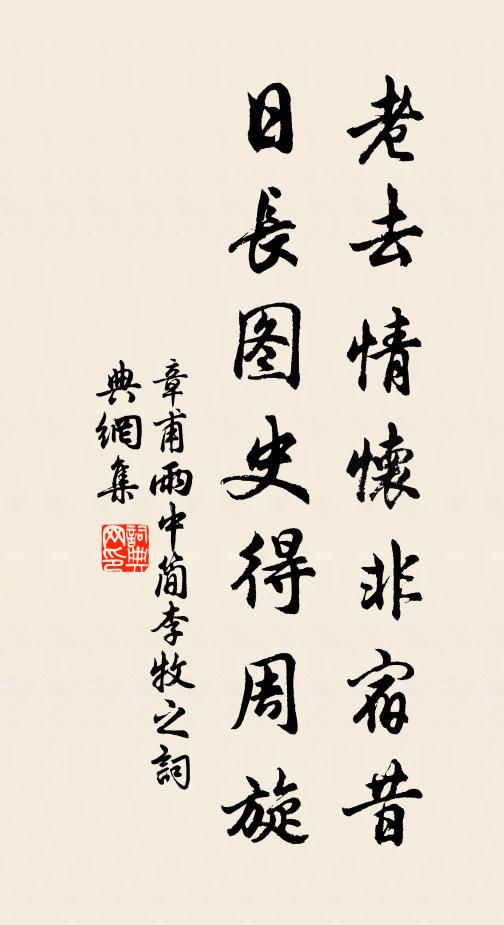 老去情懷非宿昔
日長图史得周旋
章甫雨中簡李牧之詞
典網集
詞典网印